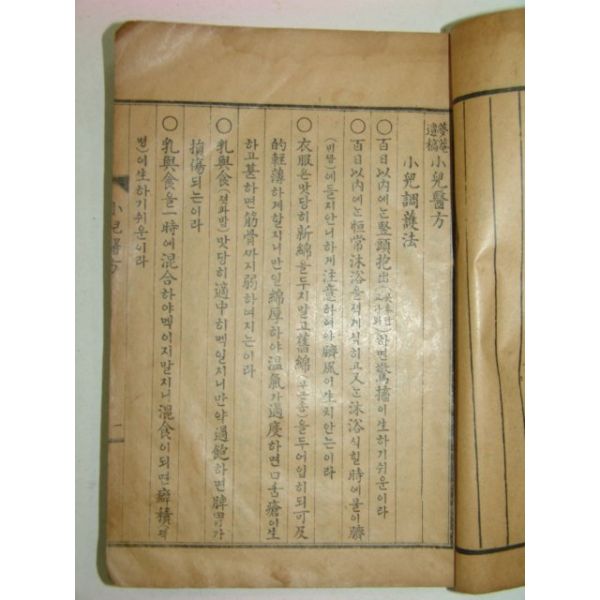 夢菴遺稿 小兒醫方
小兒調護法
○百日以內에는竪頭抱出하면驚搐이生하기쉬운이라
○百日以內에는恒常沐浴을식게식히고又는沐浴식힐時에물이臍
에들지안너하게注意하여야臍風이生치안는이라
○衣服은맛당히新綿을두지말고舊綿을두어입히되可及
的輕薄하게할지니만일綿厚하야溫氣가過度하면口舌瘡이生
하고甚하면筋骨까지弱하여지는이라
○乳與食(젓과밥)맛당히適中히멕일지니만약過飽하면脾胃가
損傷되는이라
○乳與食을一時에混合하야멕이지말지니混食이되면癖積(적
병)이生하기쉬운이라
小兒醫方
一